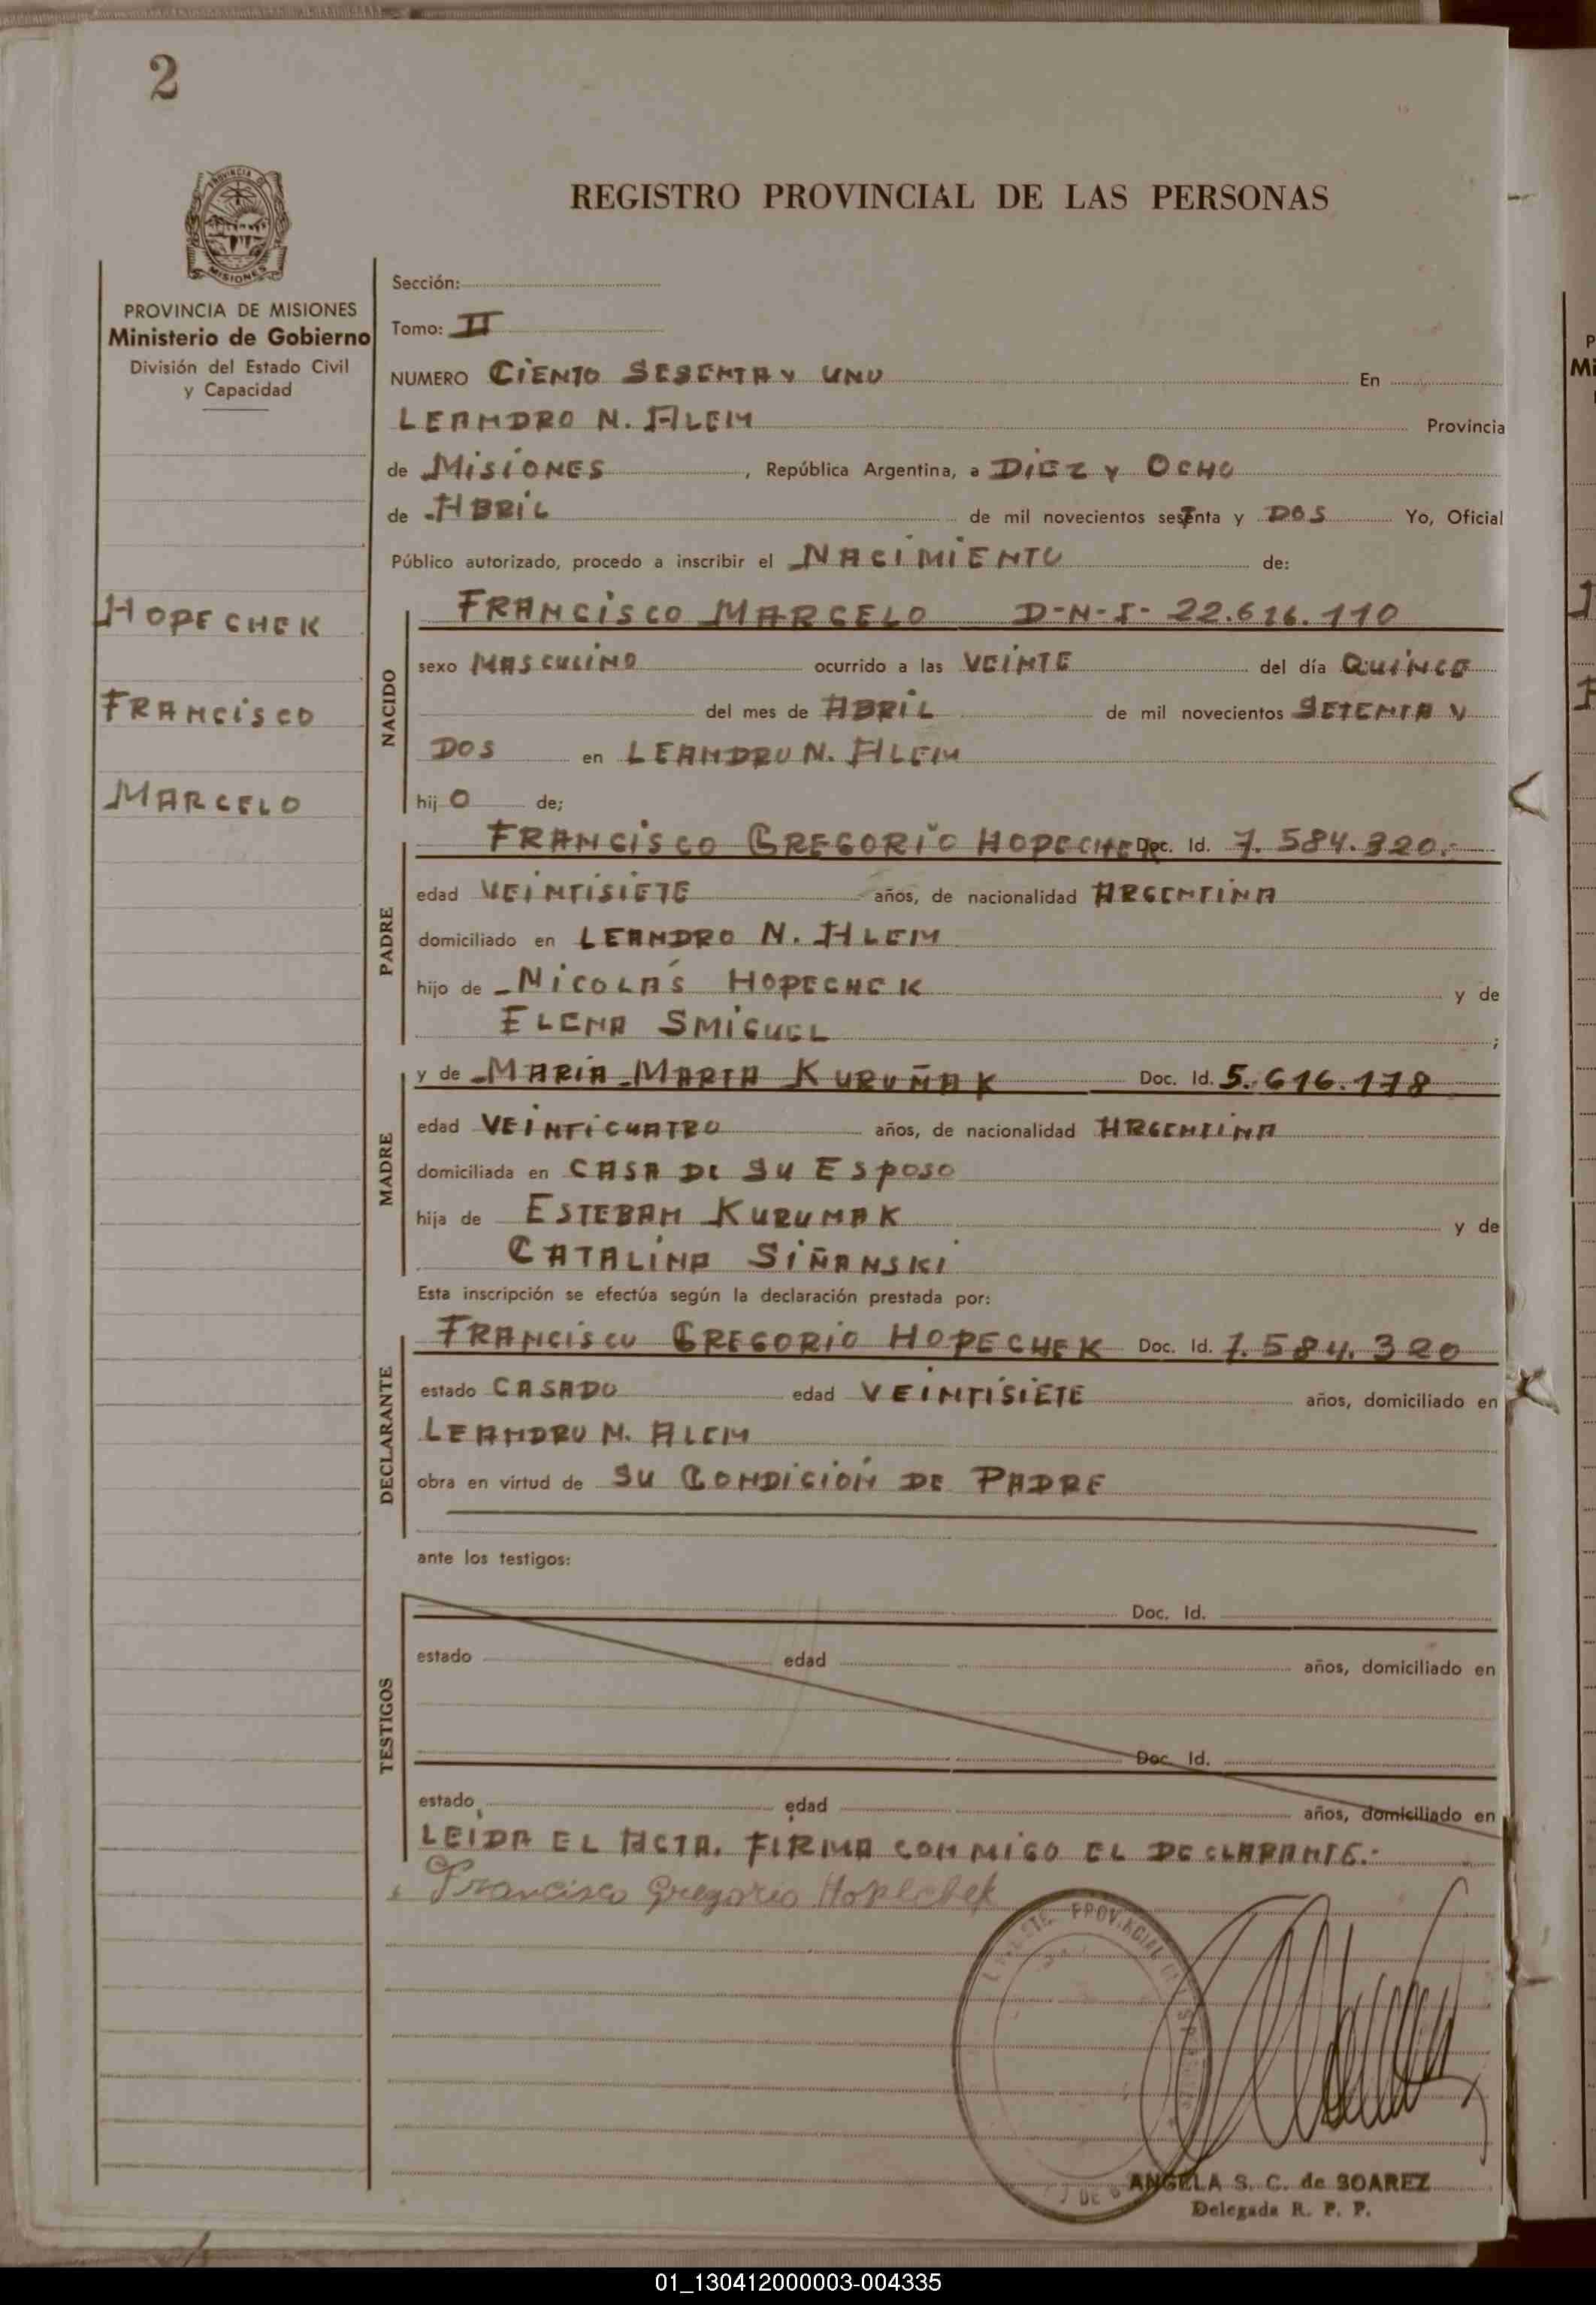 2
REGISTRO PROVINCIAL DE LAS PERSONAS
PROVINCIA
MISIONES
PROVINCIA DE MISIONES
Ministerio de Gobierno
División del Estado Civil
y Capacidad
HOPECHEK
FRANCISCO
MARCELO
Sección:
Tomo: II
NUMERO CIENTO SESENTA Y UNO En
LEANDRO N. ALEM Provincia
de MISIONES, República Argentina, a DIEZ Y OCHO
de ABRIL de mil novecientos setenta y DOS Yo, Oficial
Público autorizado, procedo a inscribir el NACIMIENTO de:
NACIDO
FRANCISCO MARCELO D-N-I- 22.616.110
sexo MASCULINO ocurrido a las VEINTE del día QUINCE
del mes de ABRIL de mil novecientos SETENTA Y
DOS en LEANDRO N. ALEM
hijO de;
PADRE
FRANCISCO GREGORIO HOPECHEK Doc. Id. 7.584.320.-
edad VEINTISIETE años, de nacionalidad ARGENTINA
domiciliado en LEANDRO N. ALEM
hijo de NICOLÁS HOPECHEK y de
ELENA SMIGUEL;
MADRE
y de MARIA MARTA KURUÑAK Doc. Id. 5.616.178
edad VEINTICUATRO años, de nacionalidad ARGENTINA
domiciliada en CASA DE SU ESPOSO
hija de ESTEBAN KURUNAK y de
CATALINA SIÑANSKI
Esta inscripción se efectúa según la declaración prestada por:
DECLARANTE
FRANCISCO GREGORIO HOPECHEK Doc. Id. 7.584.320
estado CASADO edad VEINTISIETE años, domiciliado en
LEANDRO N. ALEM
obra en virtud de SU CONDICIÓN DE PADRE
ante los testigos:
TESTIGOS
Doc. Id.
estado edad años, domiciliado en
Doc. Id.
estado edad años, domiciliado en
LEIDA EL ACTA. FIRMA CONMIGO EL DECLARANTE.-
Francisco Gregorio Hopechek
ANGELA S. C. de SOAREZ
Delegada R. P. P.
01_130412000003-004335